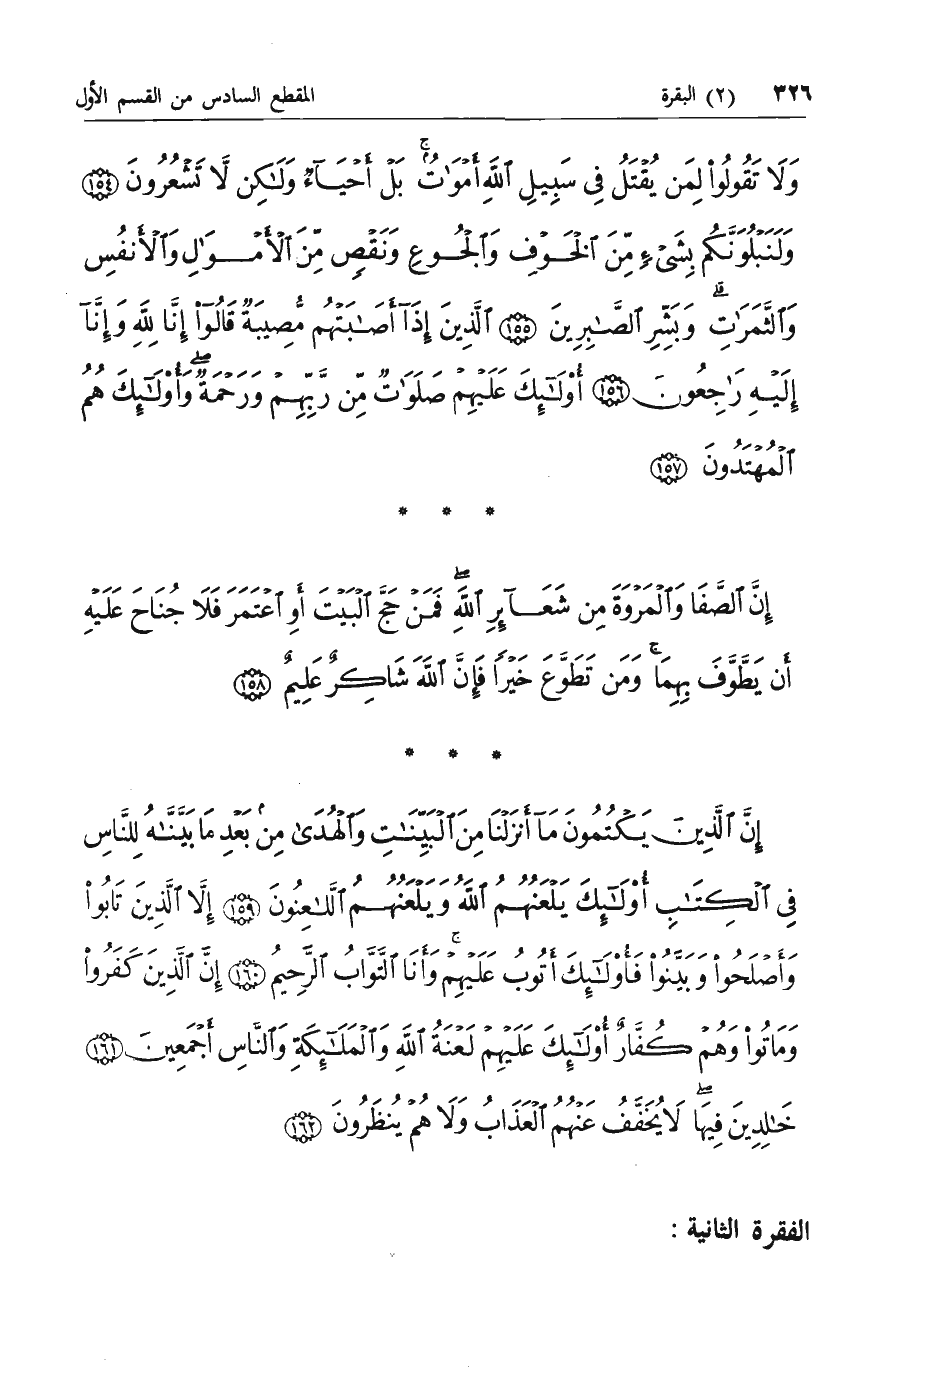 ٣٢٦ (٢) البقرة المقطع السادس من القسم الأول
وَلَا تَقُولُوا۟ لِمَن يُقْتَلُ فِى سَبِيلِ ٱللَّهِ أَمْوَٰتٌۢ ۚ بَلْ أَحْيَآءٌ وَلَٰكِن لَّا تَشْعُرُونَ ﴿١٥٤﴾
وَلَنَبْلُوَنَّكُم بِشَىْءٍ مِّنَ ٱلْخَوْفِ وَٱلْجُوعِ وَنَقْصٍ مِّنَ ٱلْأَمْوَٰلِ وَٱلْأَنفُسِ
وَٱلثَّمَرَٰتِ ۗ وَبَشِّرِ ٱلصَّٰبِرِينَ ﴿١٥٥﴾ ٱلَّذِينَ إِذَآ أَصَٰبَتْهُم مُّصِيبَةٌ قَالُوٓا۟ إِنَّا لِلَّهِ وَإِنَّآ
إِلَيْهِ رَٰجِعُونَ ﴿١٥٦﴾ أُو۟لَٰٓئِكَ عَلَيْهِمْ صَلَوَٰتٌ مِّن رَّبِّهِمْ وَرَحْمَةٌ ۖ وَأُو۟لَٰٓئِكَ هُمُ
ٱلْمُهْتَدُونَ ﴿١٥٧﴾
* * *
إِنَّ ٱلصَّفَا وَٱلْمَرْوَةَ مِن شَعَآئِرِ ٱللَّهِ ۖ فَمَنْ حَجَّ ٱلْبَيْتَ أَوِ ٱعْتَمَرَ فَلَا جُنَاحَ عَلَيْهِ
أَن يَطَّوَّفَ بِهِمَا ۚ وَمَن تَطَوَّعَ خَيْرًا فَإِنَّ ٱللَّهَ شَاكِرٌ عَلِيمٌ ﴿١٥٨﴾
* * *
إِنَّ ٱلَّذِينَ يَكْتُمُونَ مَآ أَنزَلْنَا مِنَ ٱلْبَيِّنَٰتِ وَٱلْهُدَىٰ مِنۢ بَعْدِ مَا بَيَّنَّٰهُ لِلنَّاسِ
فِى ٱلْكِتَٰبِ أُو۟لَٰٓئِكَ يَلْعَنُهُمُ ٱللَّهُ وَيَلْعَنُهُمُ ٱللَّٰعِنُونَ ﴿١٥٩﴾ إِلَّا ٱلَّذِينَ تَابُوا۟
وَأَصْلَحُوا۟ وَبَيَّنُوا۟ فَأُو۟لَٰٓئِكَ أَتُوبُ عَلَيْهِمْ ۚ وَأَنَا ٱلتَّوَّابُ ٱلرَّحِيمُ ﴿١٦٠﴾ إِنَّ ٱلَّذِينَ كَفَرُوا۟
وَمَاتُوا۟ وَهُمْ كُفَّارٌ أُو۟لَٰٓئِكَ عَلَيْهِمْ لَعْنَةُ ٱللَّهِ وَٱلْمَلَٰٓئِكَةِ وَٱلنَّاسِ أَجْمَعِينَ ﴿١٦١﴾
خَٰلِدِينَ فِيهَا ۖ لَا يُخَفَّفُ عَنْهُمُ ٱلْعَذَابُ وَلَا هُمْ يُنظَرُونَ ﴿١٦٢﴾
الفقرة الثانية :